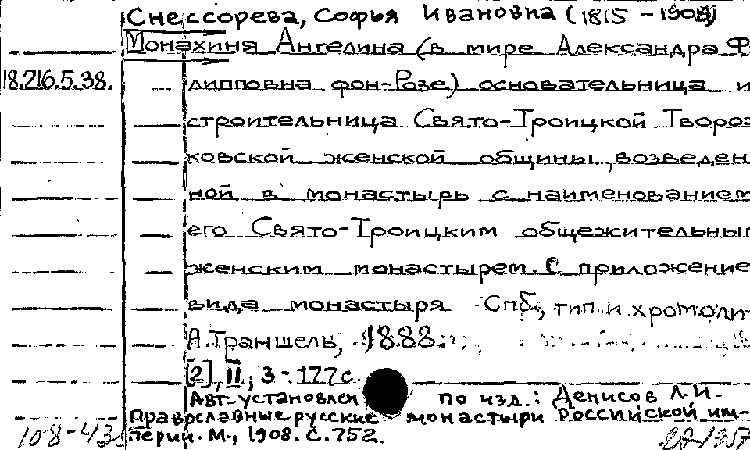 Снессорева, Софья Ивановна (1815 - 1904)
Монахиня Ангелина (в мире Александра Ф
18.216.5.38. липповна фон-Розе) основательница и
строительница Свято-Троицкой Твороз
ковской женской общины, возведен
ной в монастырь с наименованием
его Свято-Троицким общежительным
женским монастырем. С приложение
вида монастыря Спб, тип. и хромолит
А. Траншель, 1888.
[2], II, 3-177 с.
Авт. установлен по изд.: Денисов Л.И.
Православные русские монастыри Российской им-
108-43 перии. М., 1908. С. 752.